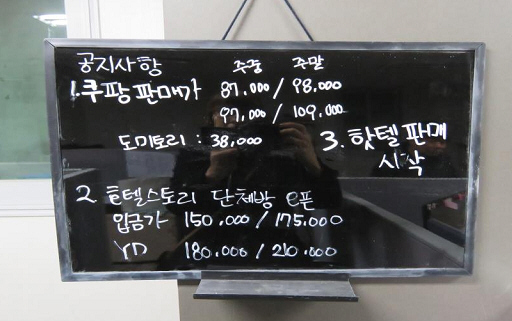 공지사항 주중 주말
1. 쿠팡판매가 87,000 / 98,000
97,000 / 109,000
도미토리 : 38,000
3. 핫텔 판매
시작
2. 호텔스토리 단체방 오픈
입금가 150,000 / 175,000
YD 180,000 / 210,000